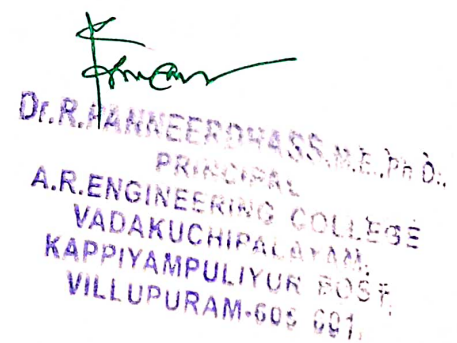 Dr.R.PANNEERDHASS.M.E.,Ph D.,
PRINCIPAL
A.R.ENGINEERING COLLEGE
VADAKUCHIPALAYAM,
KAPPIYAMPULIYUR POST,
VILLUPURAM-605 601.